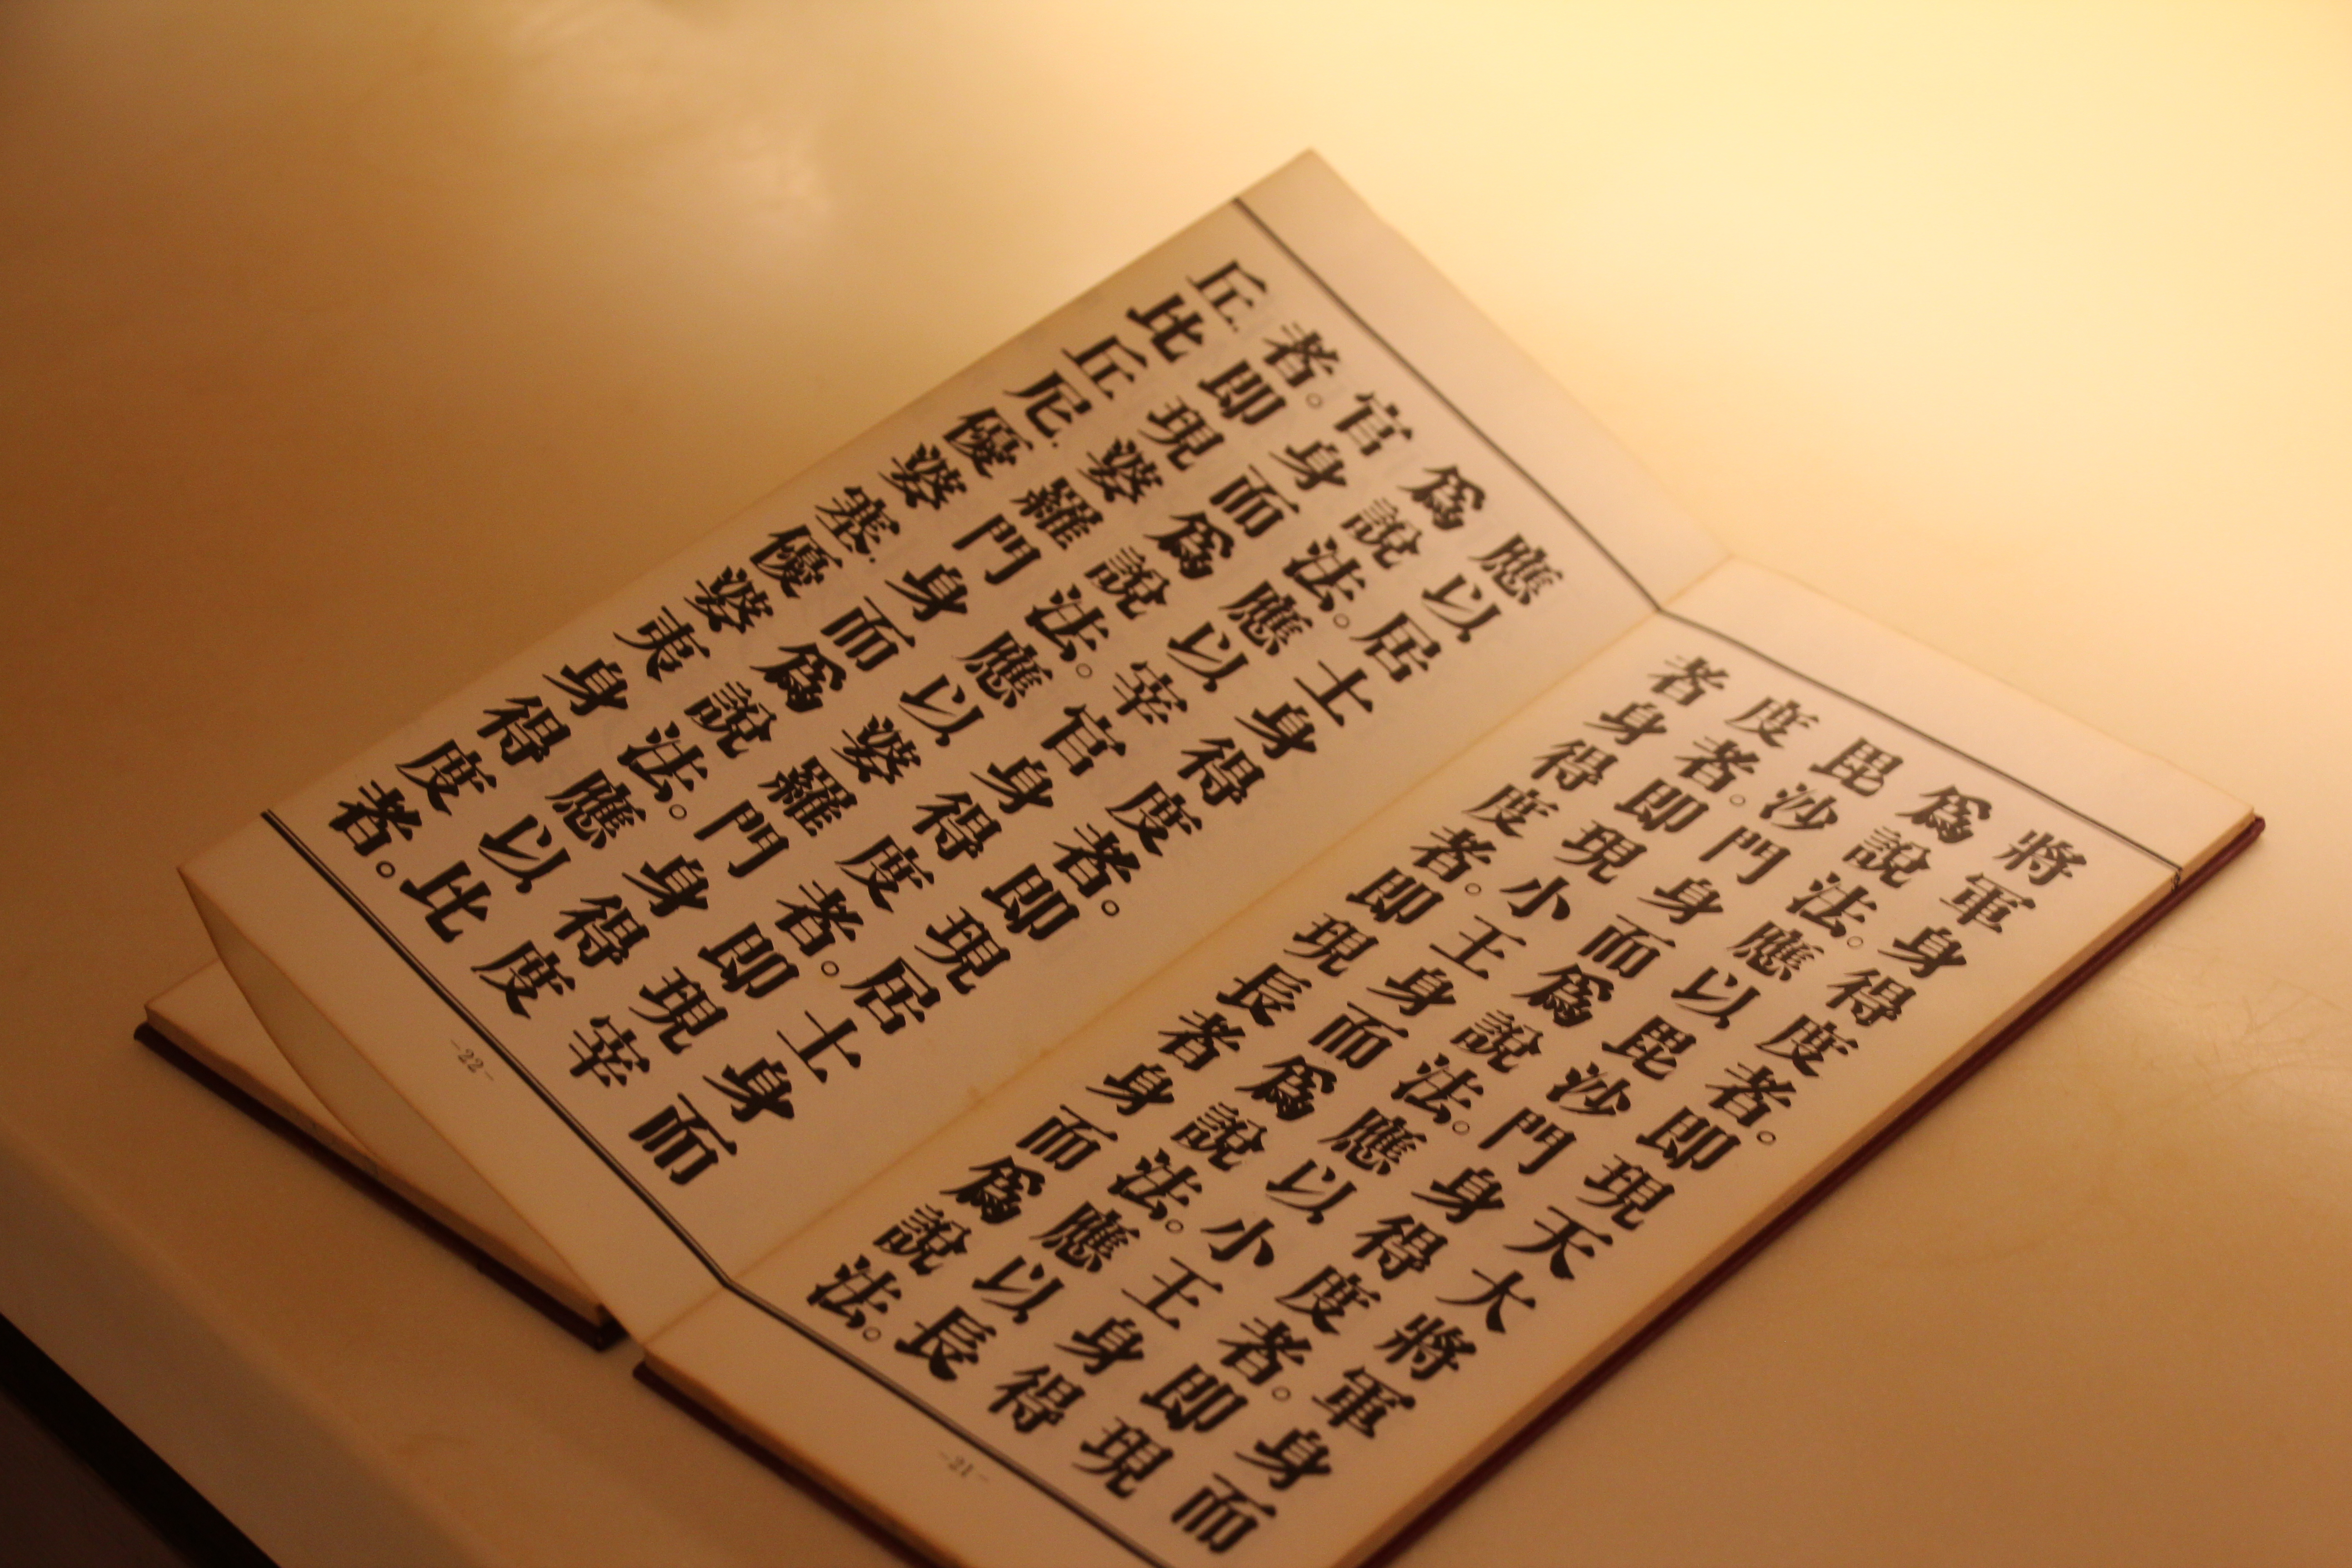 將軍身得度者。即現天大將軍身而
爲說法。應以毘沙門身得度者。即現
毘沙門身而爲說法。應以小王身得
度者。即現小王身而爲說法。應以長
者身得度者。即現長者身而爲說法。
-21-
應以居士身得度者。即現居士身而
爲說法。應以宰官身得度者。即現宰
官身而爲說法。應以婆羅門身得度
者。即現婆羅門身而爲說法。應以比
丘.比丘尼.優婆塞.優婆夷身得度者。
-22-